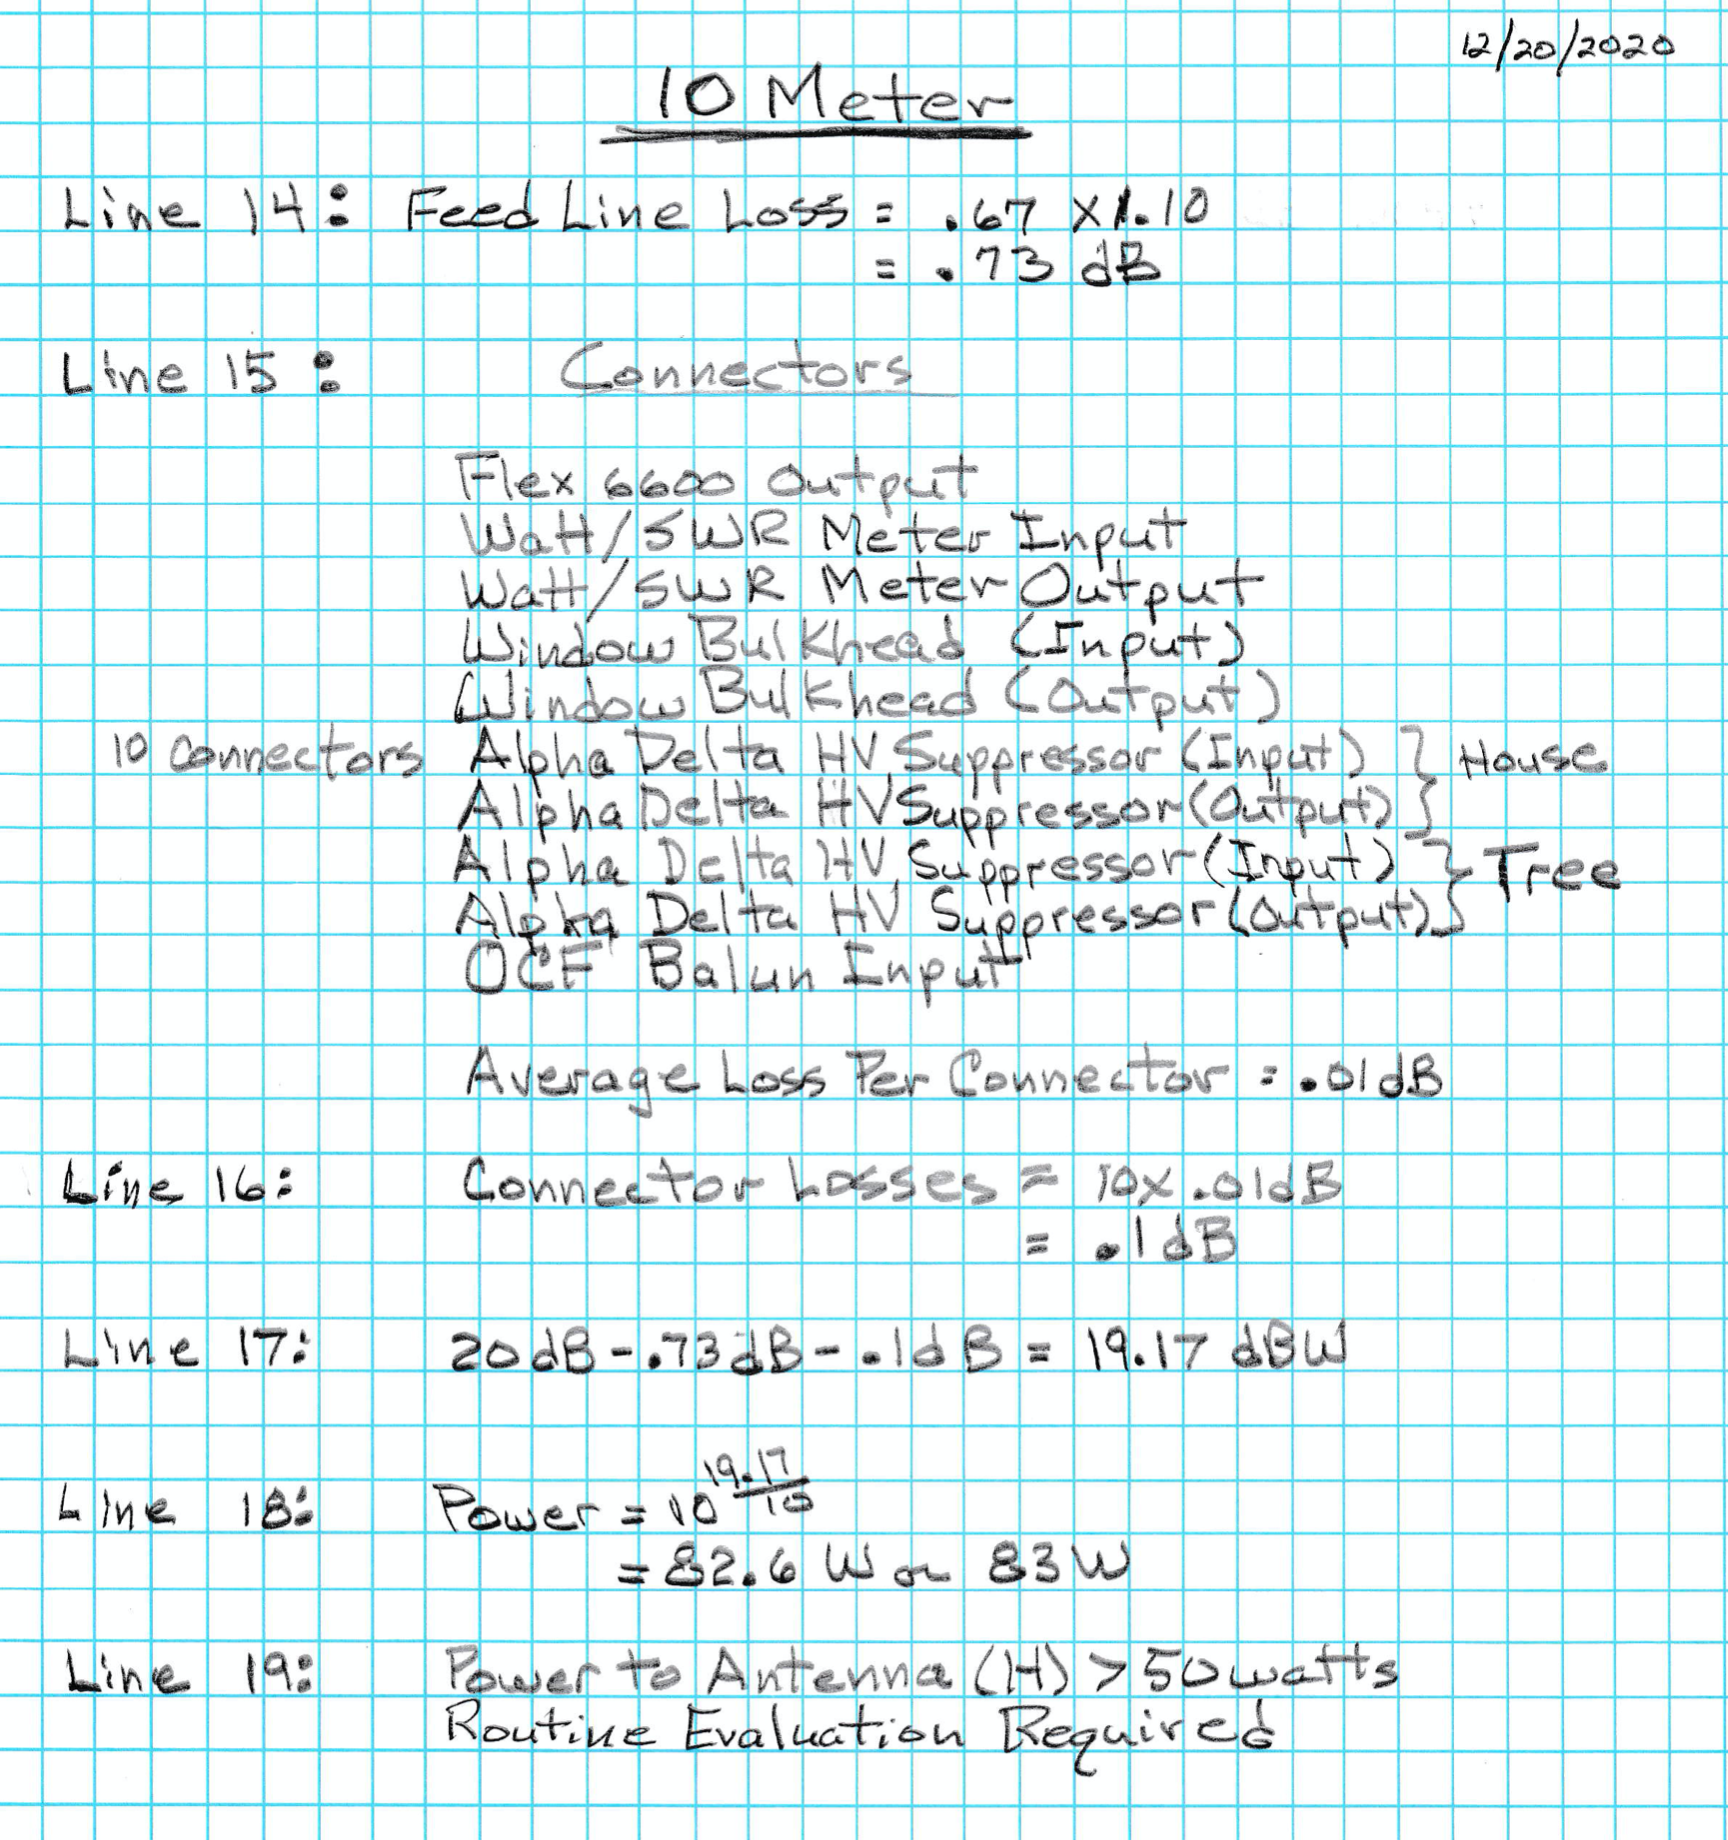 12/20/2020
10 Meter
Line 14: Feed Line Loss = .67 X 1.10
= .73 dB
Line 15: Connectors
Flex 6600 Output
Watt/SWR Meter Input
Watt/SWR Meter Output
Window Bulkhead (Input)
Window Bulkhead (Output)
10 connectors Alpha Delta HV Suppressor (Input) } House
Alpha Delta HV Suppressor (Output)
Alpha Delta HV Suppressor (Input) } Tree
Alpha Delta HV Suppressor (Output)
OCF Balun Input
Average Loss Per Connector = .01dB
Line 16: Connector Losses = 10x .01dB
= .1dB
Line 17: 20dB - .73dB - .1dB = 19.17 dBW
Line 18: Power = 10^(19.17/10)
= 82.6 W or 83 W
Line 19: Power to Antenna (H) > 50 watts
Routine Evaluation Required